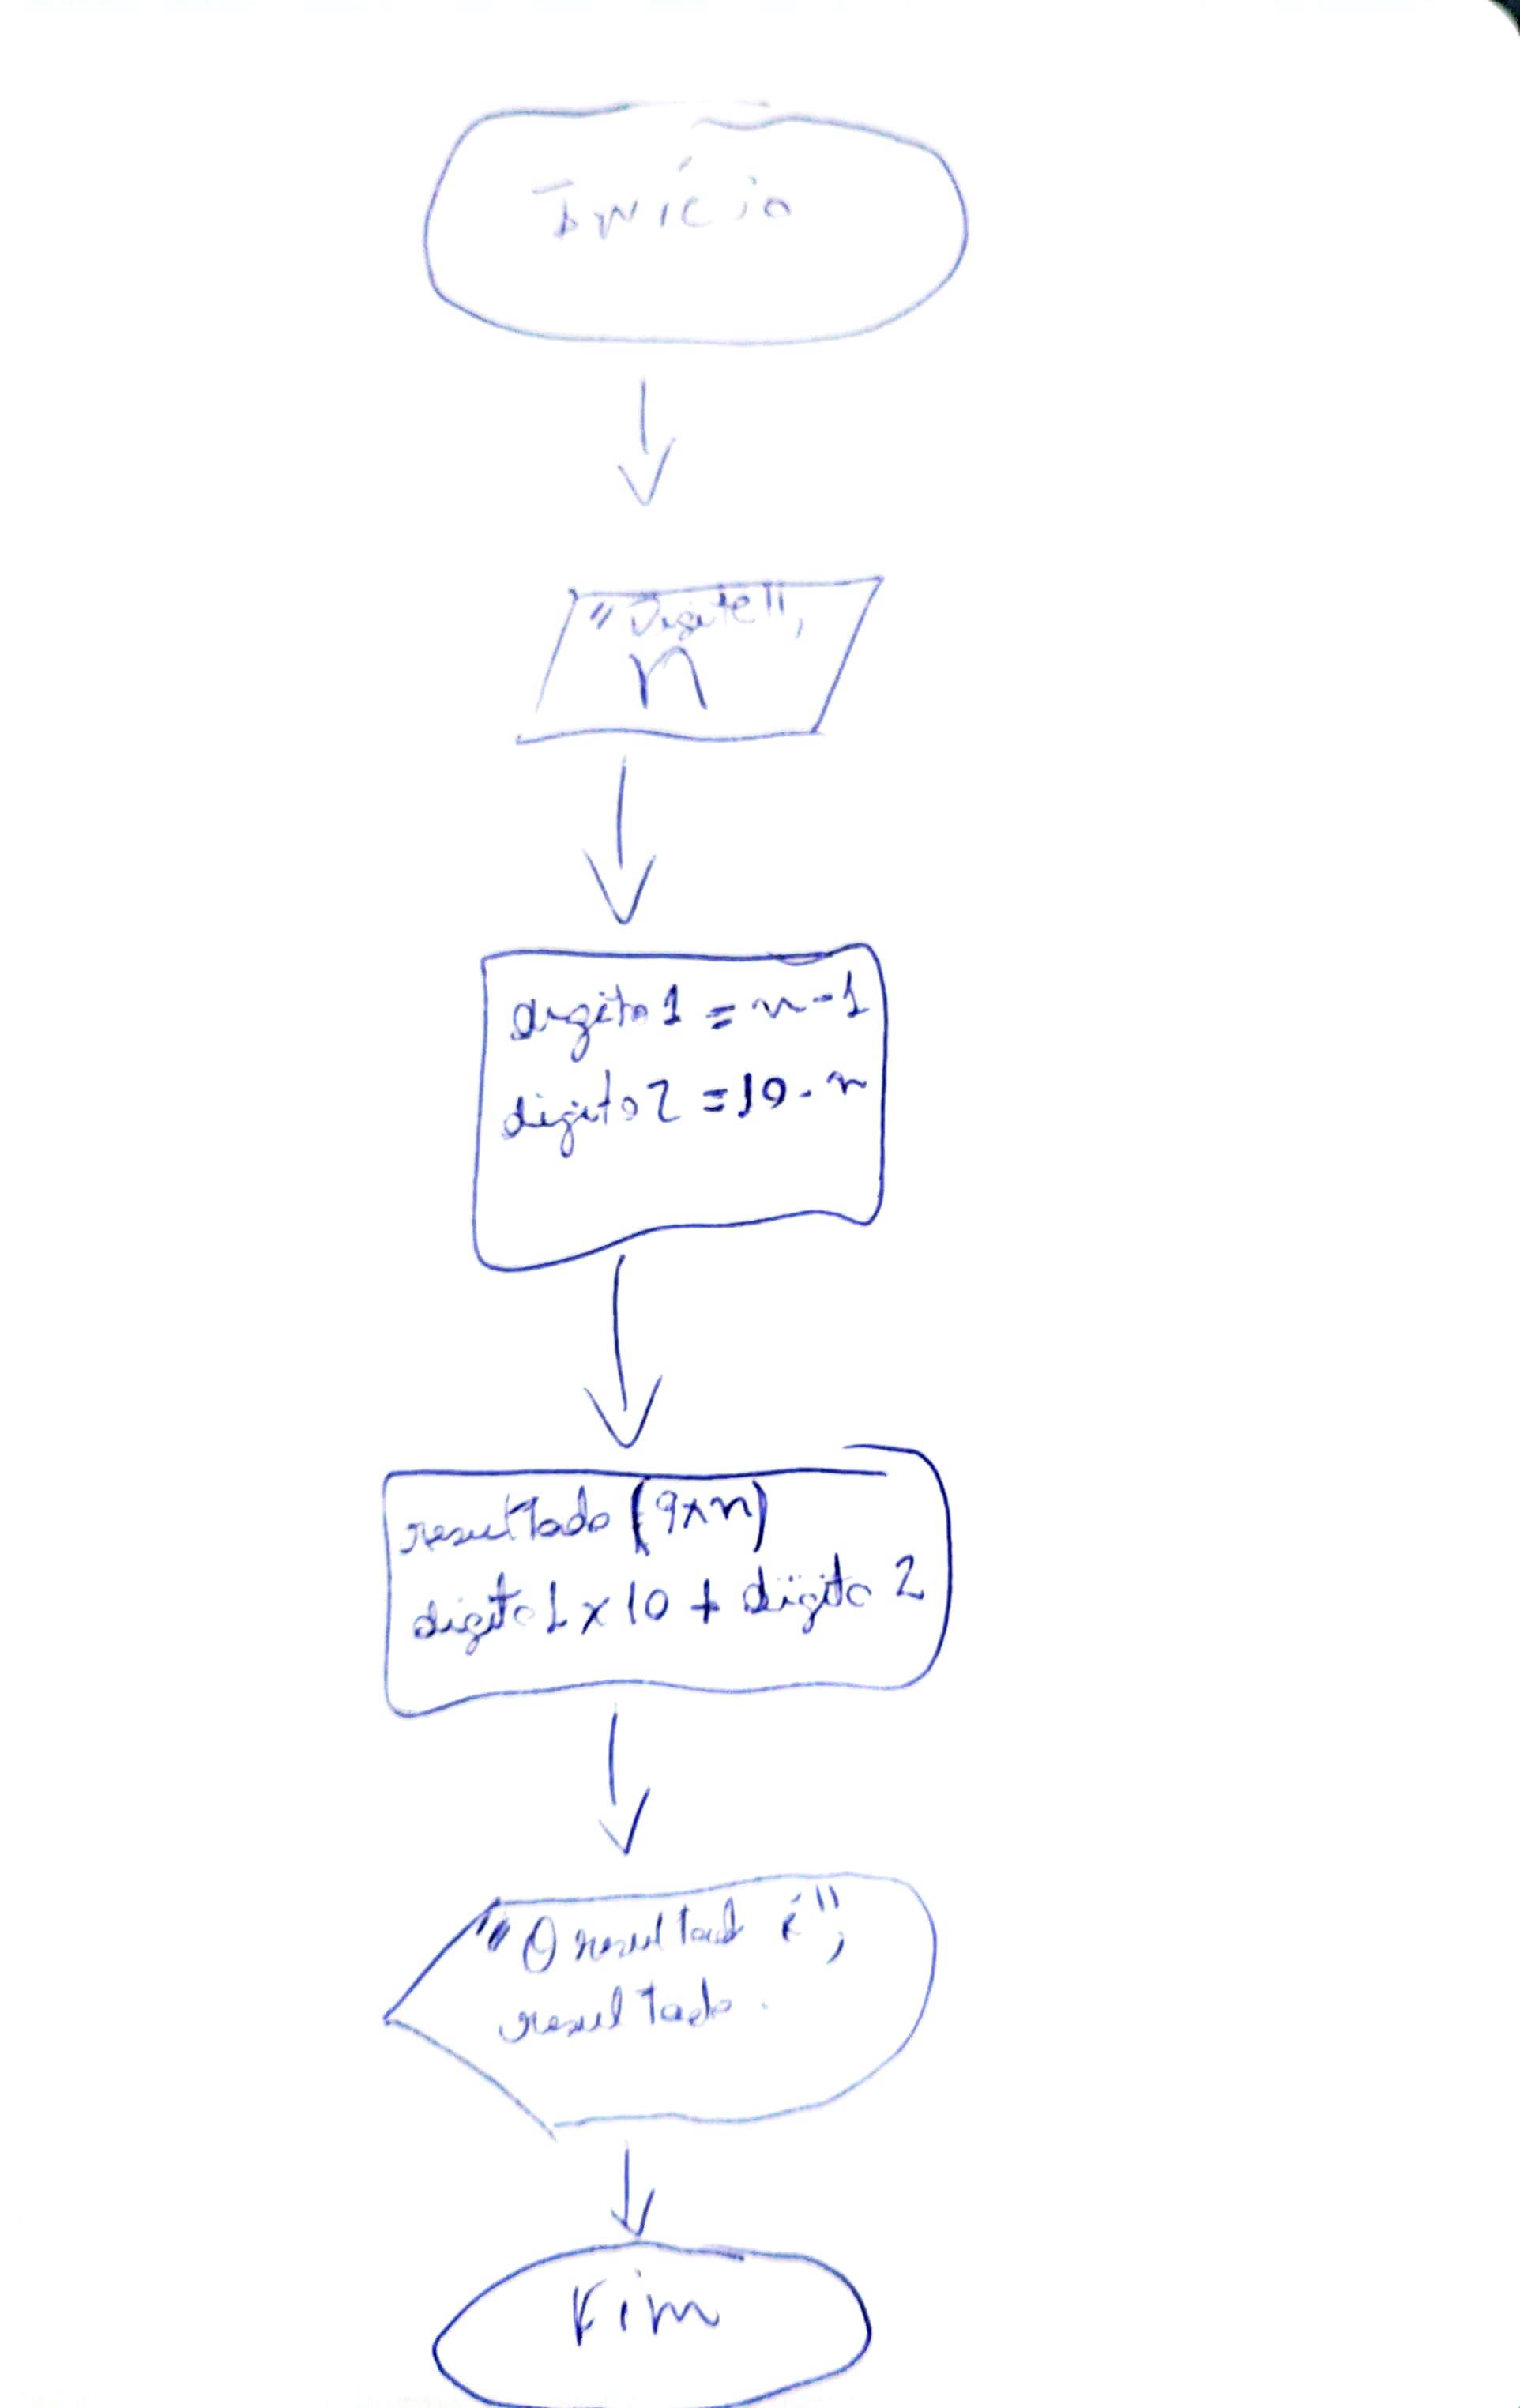 Início
"Digite",
n
digito 1 = n - 1
digito 2 = 10 - n
resultado (9xn)
digito 1 x 10 + digito 2
"O resultad é",
resultado.
Fim